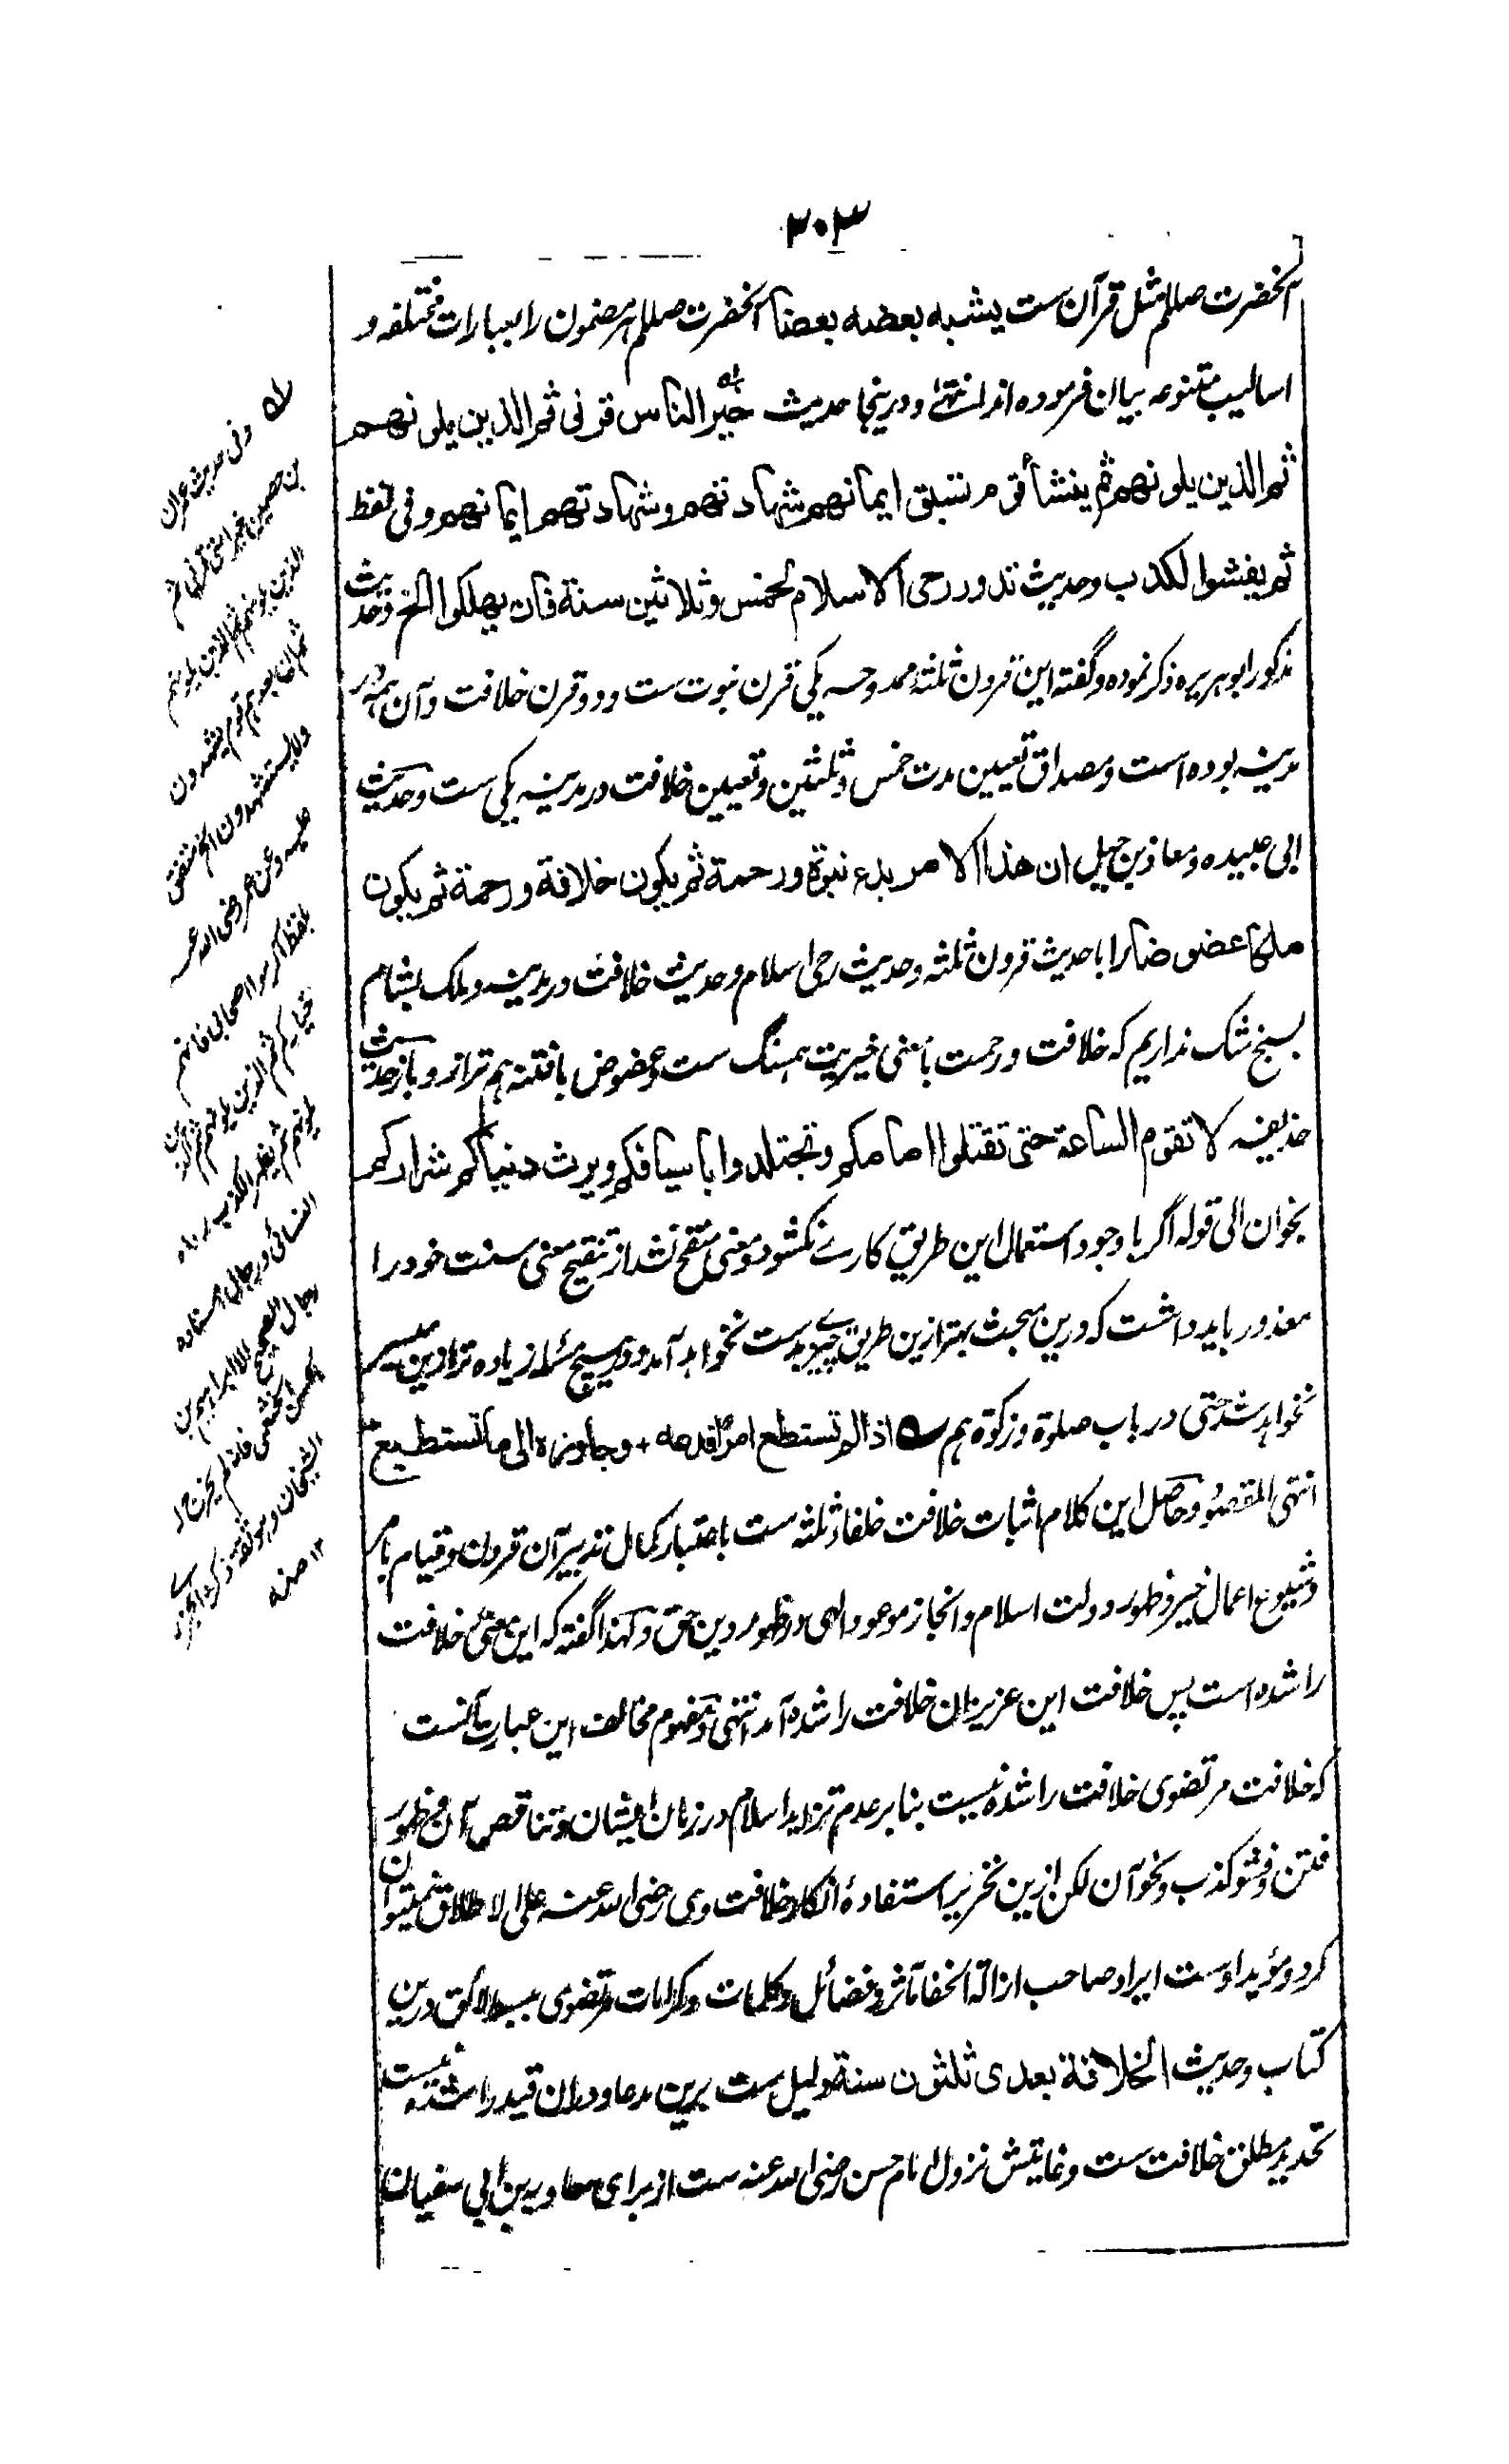 ۲۰۳
آنحضرت صللم مثل قرآن ست يشبه بعضه بعضا آنحضرت صللم هر مضمون را بعبارات مختلفه و
اساليب متنوعه بيان فرموده اند انتهى و درينجا حديث خير الناس قرنى ثم الذين يلونهم
ثم الذين يلونهم ثم ينشأ قوم تسبق ايمانهم شهادتهم وشهادتهم ايمانهم وفى لفظ
ثم يفشوا لكذب وحديث تدور رحى الاسلام لخمس وثلاثين سنة فان يهلكوا الخ وحديث
مذكور ابوهريره ذكر نموده وگفته اين قرون ثلثه ممدوحه يكى قرن نبوت ست ودو قرن خلافت وآن همه در
مدينه بوده است ومصداق تعيين مدت خمس وثلثين وتعيين خلافت در مدينه يكى ست وحديث
ابى عبيده ومعاذ بن جبل ان هذا الامر بدء نبوة ورحمة ثم يكون خلافة ورحمة ثم يكون
ملكا عضوضا را با حديث قرون ثلثه وحديث رحى اسلام وحديث خلافت در مدينه وملك بشام
بسنج شك نداريم كه خلافت ورحمت با معنى خيريت همسنگ ست وعضوض با فتنه هم ترازو وباز حديث
حذيفه لا تقوم الساعة حتى تقتلوا امامكم وتجتلدوا باسيافكم ويرث دنياكم شراركم
بخوان الى قوله اگر با وجود استعمال اين طريق كارے نكشود ومعنى منقح نشد از تنقيح معنى سنت خود را
معذور بايد داشت كه درين مبحث بهتر ازين طريق چيزے بدست نخواهد آمد ودر هيچ مسئله زياده تر ازين ميسر
نخواهد شد حتى در باب صلوة وزكوة هم ے اذا لم تستطع امرًا فدعه + وجاوزه الى ما تستطيع
انتهى المقصود وحاصل اين كلام اثبات خلافت خلفاء ثلثه ست باعتبار كمال تدبير آن قرون وقيام بامر
وشيوع اعمال خير وظهور دولت اسلام وانجاز موعود الهى در ظهور دين حق ولهذا گفته كه اين معنى خلافت
راشده است پس خلافت اين عزيزان خلافت راشده آمد انتهى ومفهوم مخالف اين عبارت آنست
كه خلافت مرتضوى خلافت راشده نيست بنا بر عدم تزايد اسلام در زمان ايشان وتناقص آن وظهور
فتن وفشو كذب ونحو آن لكن ازين تحرير استفادهٔ انكار خلافت وى رضى الله عنه على الاطلاق نميتوان
كرد ومؤيد اوست ايراد صاحب ازالة الخفا مآثر وفضائل وكلمات وكرامات مرتضوى ببسط لائق درين
كتاب وحديث الخلافة بعدى ثلثون سنة دليل ست برين مدعا ودران قيد راشده نيست
تحديد مطلق خلافت ست وغايتش نزول امام حسن رضى الله عنه ست از براى معاويه بن ابى سفيان
له وفى حديث عمران
بن حصين خير امتى قرنى ثم
الذين يلونهم ثم الذين يلونهم
ثم ان بعدهم قوم يشهدون
ولا يستشهدون الخ متفق
عليه وعن عمر رضى الله عنه
بلفظ اكرموا اصحابى فانهم
خياركم ثم الذين يلونهم ثم الذين
يلونهم ثم يظهر الكذب رواه
النسائى ورجال اسناده
رجال الصحيح الا ابراهيم بن
الحسن الخثعمى فانه لم يخرج له
الشيخان وهو ثقة ذكره الجزرى
۱۲ منه